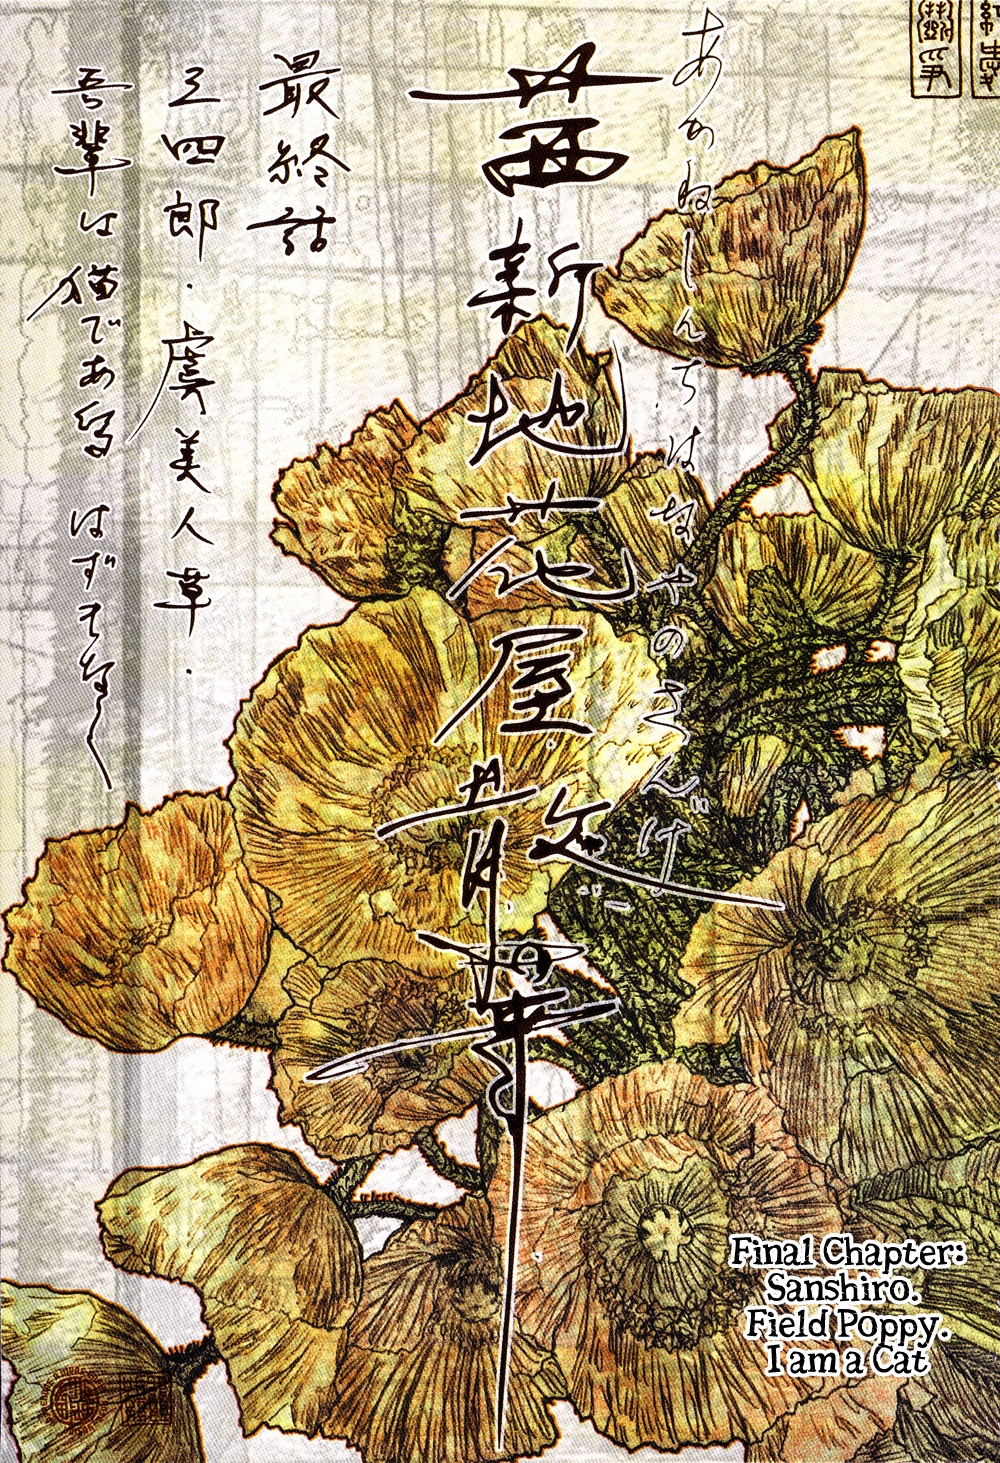 あかねしんちはなやのさんげ
茜新地花屋散華
最終話
三四郎・虞美人草・
吾輩は猫である はずもなく
Final Chapter:
Sanshiro.
Field Poppy.
I am a Cat